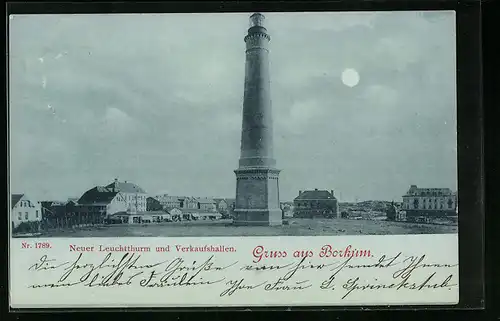 Nr. 1789.
Neuer Leuchtthurm und Verkaufshallen.
Gruss aus Borkum.
Die herzlichsten Grüße von hier sendet Ihnen
mein liebes Fräulein Ihre Frau L. Sprinckstub.